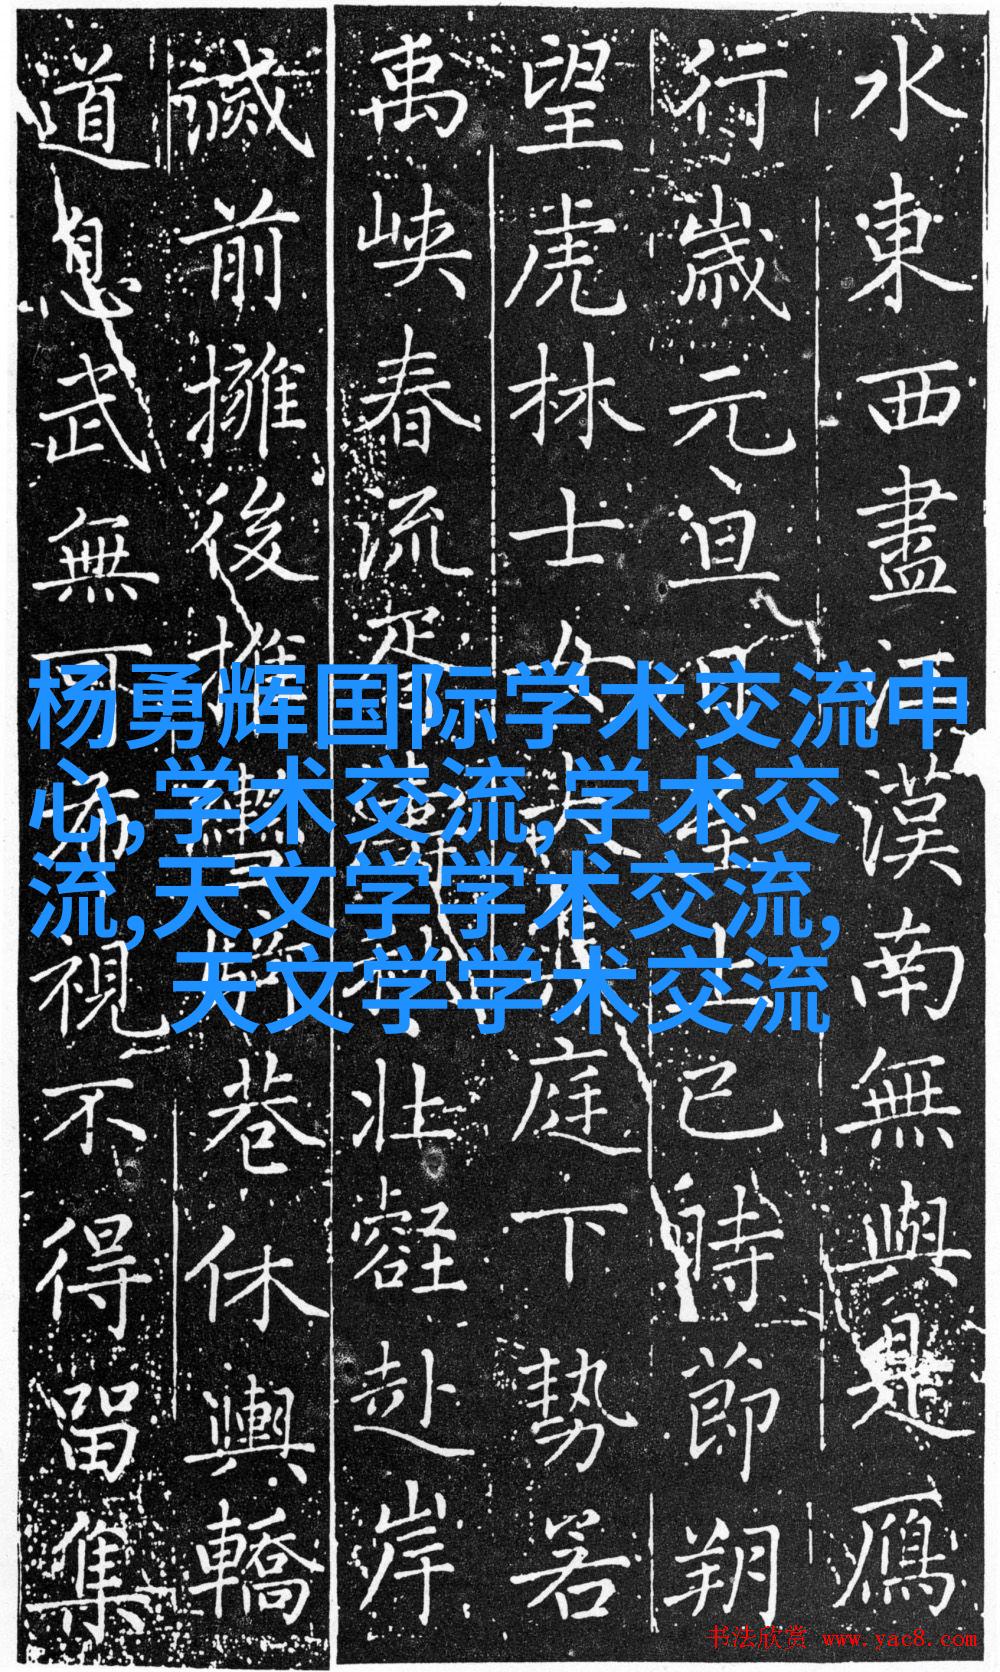 水東西盡江漢南無與是鴈
行歲元旦至上巳時節朔
望虎林士女大庭下勢若
禹峽春流壯赴岸
前擁後推巷休輿轎
道息武無可視不得留集
杨勇辉国际学术交流中
心,学术交流,学术交
流,天文学学术交流,
天文学学术交流
书法欣赏 www.yac8.com